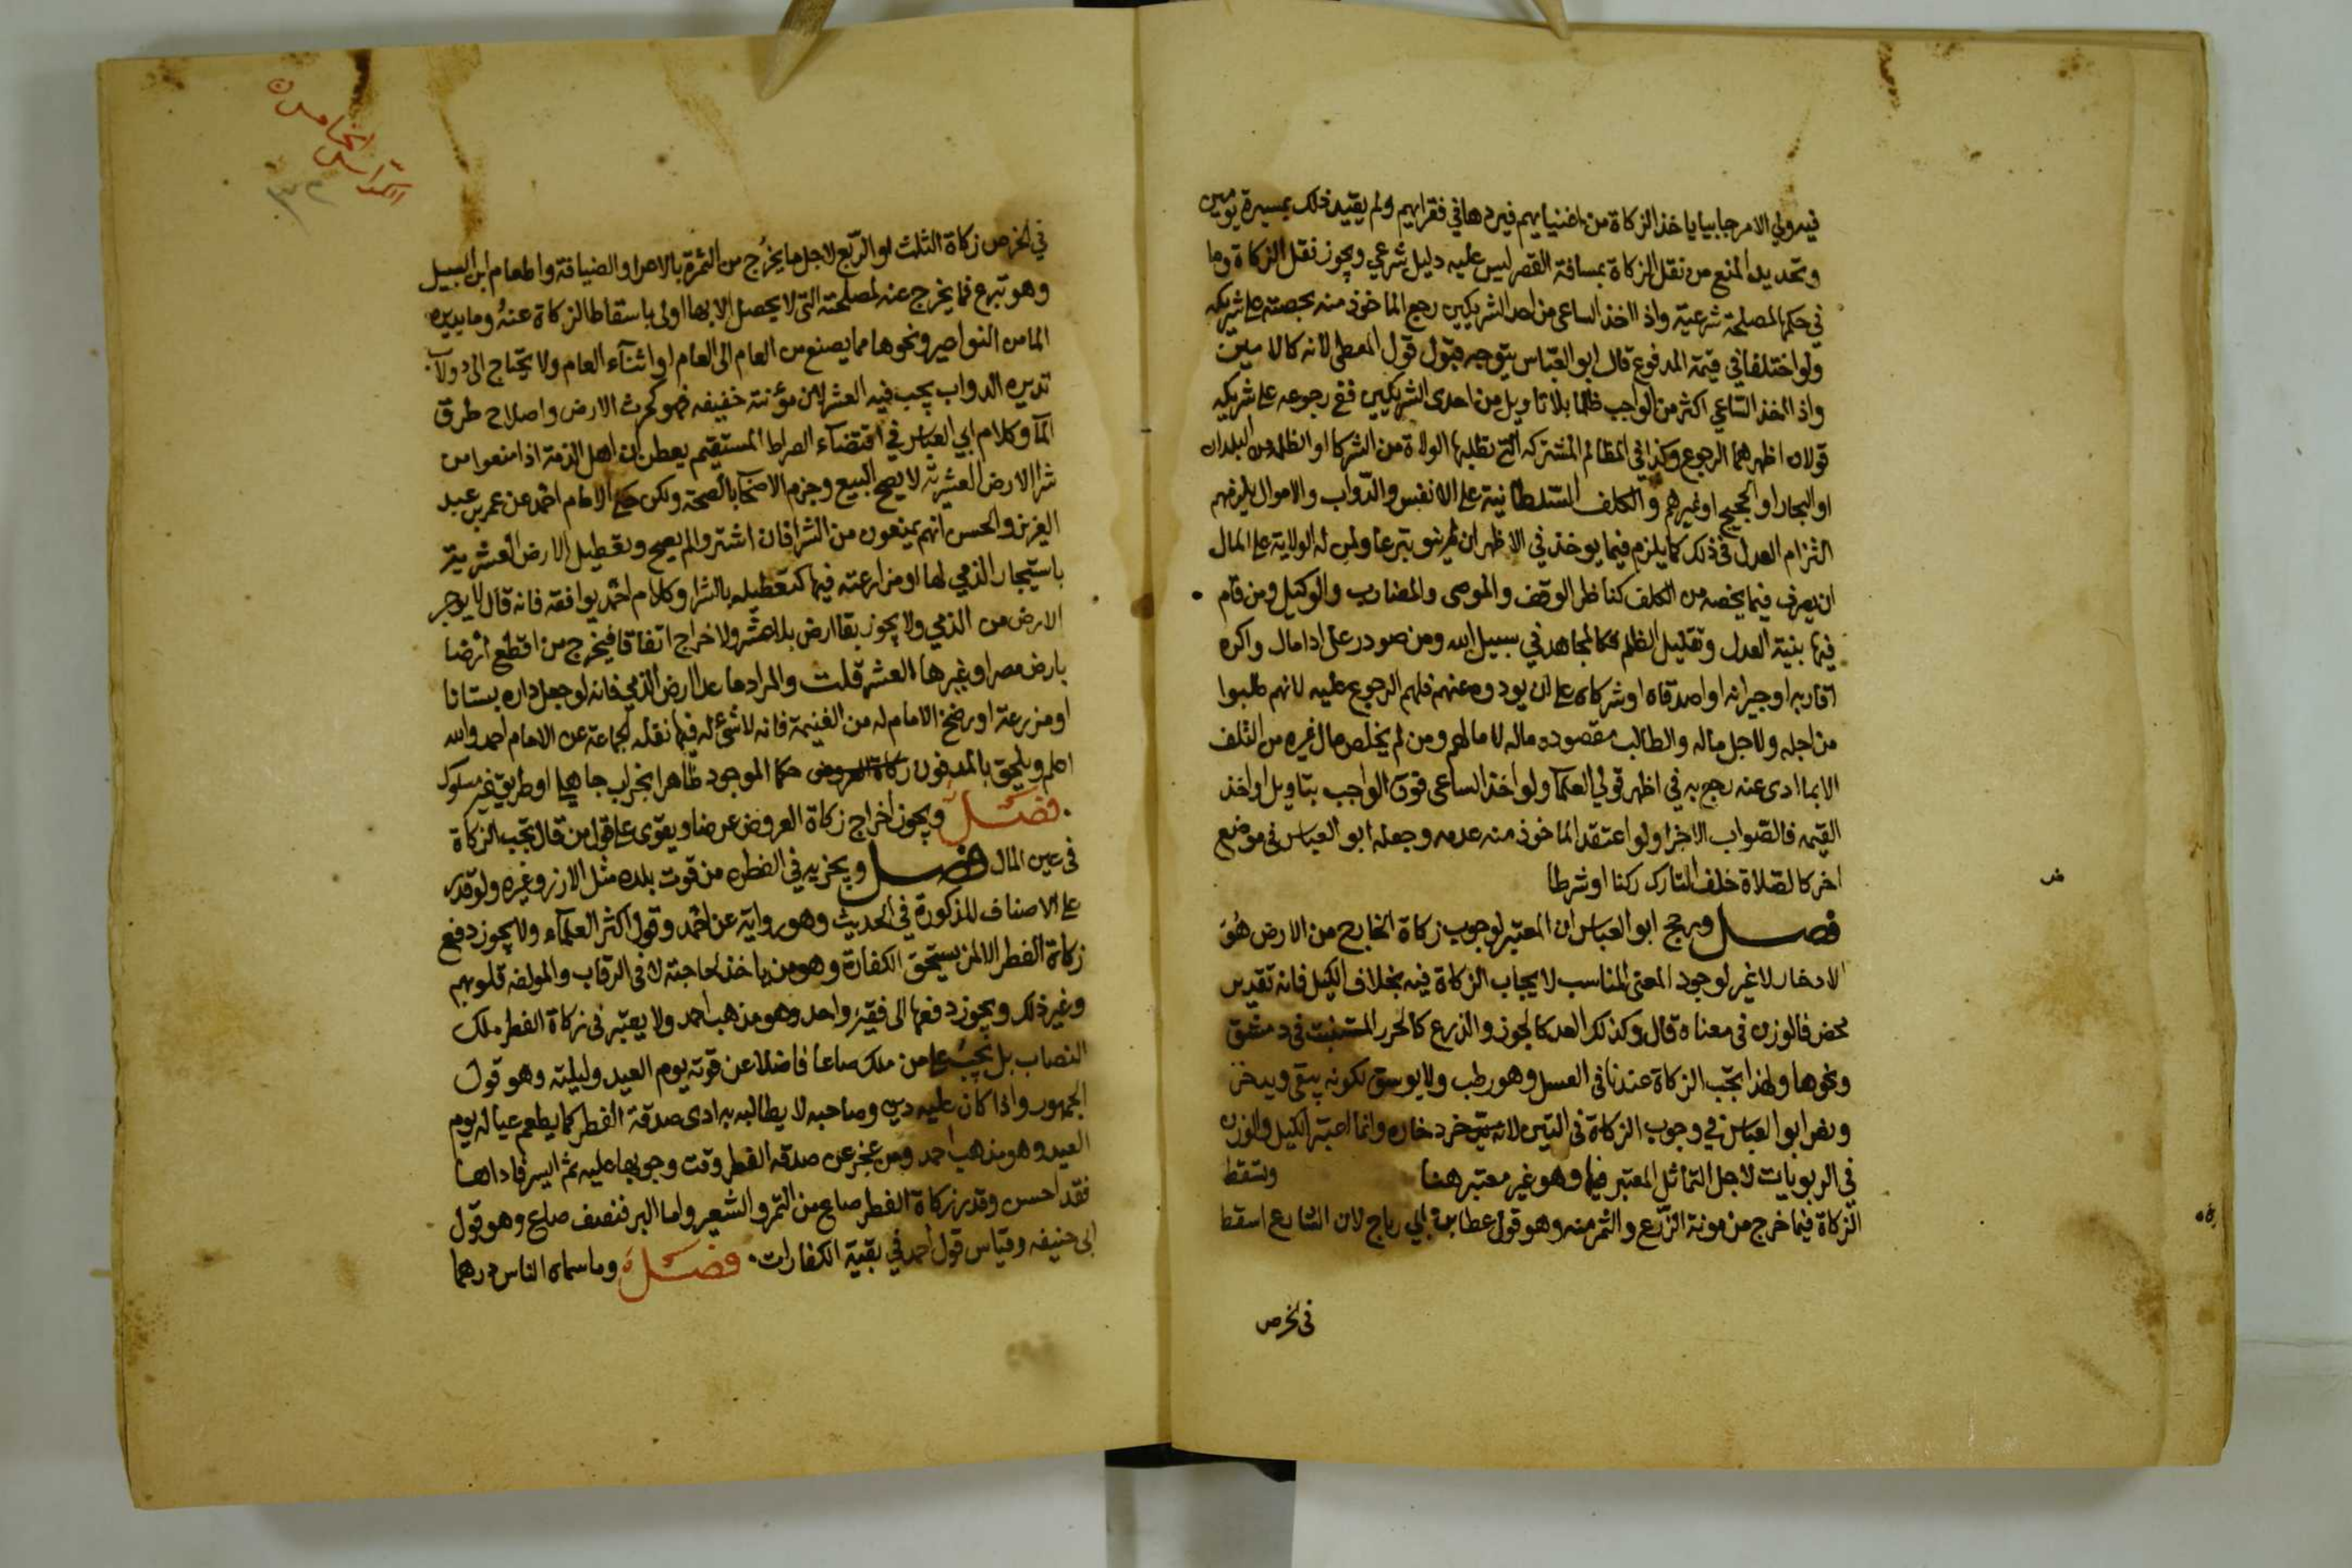 فيمن ولي الامر جابيا ياخذ الزكاة من اغنيايهم فيردها في فقرايهم ولم يقيد ذلك بمسيرة يومين
وتحديد المنع من نقل الزكاة بمسافة القصر ليس عليه دليل شرعي ويجوز نقل الزكاة وما
في حكمها لمصلحة شرعية واذا اخذ الساعي من احد الشريكين رجع الماخوذ منه بحصته على شريكه
ولو اختلفا في قيمة المدفوع قال ابو العباس يتوجه قبول قول المعطي لانه كالامين
واذا اخذ الساعي اكثر من الواجب ظلما بلا تاويل من احدى الشريكين ففي رجوعه على شريكه
قولان اظهرهما الرجوع وكذا في المظالم المشتركه التي تطلبها الولاة من الشركا او الظلمة من البلدان
او التجار او الحجيج او غيرهم والكلف السلطانية على الانفس والدواب والاموال يلزمهم
التزام العدل في ذلك كما يلزم فيما يوخذ في الاظهر ان لم ينو تبرعا ولمن له الولاية على المال
ان يصرف فيما يخصه من الكلف كناظر الوقف والموصى والمضارب والوكيل ومن قام
فيها بنية العدل وتقليل الظلم فكالمجاهد في سبيل الله ومن صودر على ادا مال واكره
اقاربه او جيرانه او اصدقاه او شركاه على ان يودوه عنهم فلهم الرجوع عليه لانهم طلبوا
من اجله ولاجل ماله والطالب مقصوده ماله لا مالهم ومن لم يخلص مال غيره من التلف
الا بما ادى عنه رجع به في اظهر قولي العلما ولو اخذ الساعي فوق الواجب بتاويل او اخذ
القيمه فالصواب الاجزا ولو اعتقد الماخوذ منه عدمه وجعله ابو العباس في موضع
اخر كالصلاة خلف التارك ركنا او شرطا
فصل ورجح ابو العباس ان المعتبر لوجوب زكاة الخارج من الارض هو
الادخار لا غير لوجود المعنى المناسب لايجاب الزكاة فيه بخلاف الكيل فانه تقدير
محض فالوزن في معناه قال وكذلك العد كالجوز والذرع كالحرر المستنبت في دمشق
ونحوها ولهذا تجب الزكاة عندنا في العسل وهو رطب ولا يوسق لكونه يبقى ويدخر
ونص ابو العباس في وجوب الزكاة في التين لانه يدخر وانما اعتبر الكيل والوزن
في الربويات لاجل التماثل المعتبر فيها وهو غير معتبر هنا وتسقط
الزكاة فيما خرج من مونة الزرع والثمر منه وهو قول عطا بن ابي رباح لان الشارع اسقط
في الخرص
الكراس الخامس
في الخرص زكاة الثلث او الربع لاجل ما يخرج من الثمرة بالاعرا والضيافة واطعام ابن السبيل
وهو تبرع فما يخرج عنه لمصلحته التي لا يحصل الا بها اولى باسقاط الزكاة عنه وما يديره
الما من النواعير ونحوها مما يصنع من العام الى العام او اثناء العام ولا يحتاج الى دولاب
تديره الدواب يجب فيه العشر لان مؤنته خفيفه فهو كحرث الارض واصلاح طرق
الما وكلام ابي العباس في اقتضاء الصراط المستقيم يعطي ان اهل الذمة اذا منعوا من
شرا الارض العشرية لا يصح البيع وجزم الاصحاب بالصحة ولكن حكى الامام احمد عن عمر بن عبد
العزيز والحسن انهم يمنعون من الشرا فان اشتروا لم يصح وتعطيل الارض العشرية
باستيجار الذمي لها او مزارعته فيها كتعطيله بالشرا وكلام احمد يوافقه فانه قال لا يوجر
الارض من الذمي ولا يجوز بقا ارض بلا عشر ولا خراج اتفاقا فيخرج من اقطع ارضا
بارض مصر او غيرها العشر قلت والمراد ما عدا ارض الذمي فانه لو جعل داره بستانا
او مزرعة او رضخ الامام له من الغنيمة فانه لا شئ له فيما نقله الجماعة عن الامام احمد والله
اعلم ويلحق بالمدفون زكاة العروض حكما الموجود ظاهرا بخراب جاهلي او طريق غير مسلوك
فصل ويجوز اخراج زكاة العروض عرضا ويقوى على قول من قال تجب الزكاة
في عين المال فصل ويجزيه في الفطره من قوت بلده مثل الارز وغيره ولو قدر
على الاصناف المذكورة في الحديث وهو رواية عن احمد وقول اكثر العلماء ولا يجوز دفع
زكاة الفطر الا لمن يستحق الكفارة وهو من ياخذ لحاجته لا في الرقاب والمولفه قلوبهم
وغير ذلك ويجوز دفعها الى فقير واحد وهو مذهب احمد ولا يعتبر في زكاة الفطر ملك
النصاب بل تجب على من ملك صاعا فاضلا عن قوته يوم العيد وليلته وهو قول
الجمهور واذا كان عليه دين وصاحبه لا يطالبه به ادى صدقة الفطر كما يطعم عياله يوم
العيد وهو مذهب احمد ومن عجز عن صدقه الفطر وقت وجوبها عليه ثم ايسر فاداها
فقد احسن وقدر زكاة الفطر صاع من التمر والشعير واما البر فنصف صاع وهو قول
ابي حنيفه وقياس قول احمد في بقية الكفارات فصل وما سماه الناس درهما